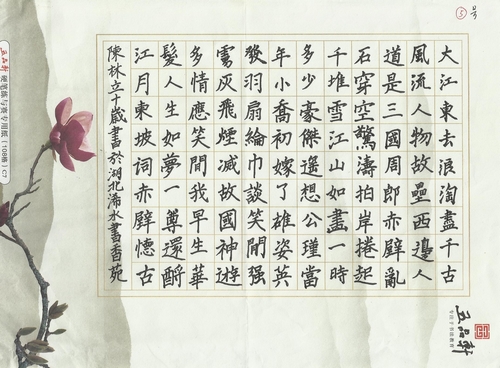 ⑤号
大江東去浪淘盡千古
風流人物故壘西邊人
道是三國周郎赤壁亂
石穿空驚濤拍岸捲起
千堆雪江山如畫一時
多少豪傑遙想公瑾當
年小喬初嫁了雄姿英
發羽扇綸巾談笑間强
虜灰飛煙滅故國神遊
多情應笑間我早生華
髮人生如夢一尊還酹
江月東坡詞赤壁懷古
陳林立十歲書於湖北浠水書香苑
五品軒 硬笔练与赛专用纸（108格）C7
五品軒
专注于书法教育